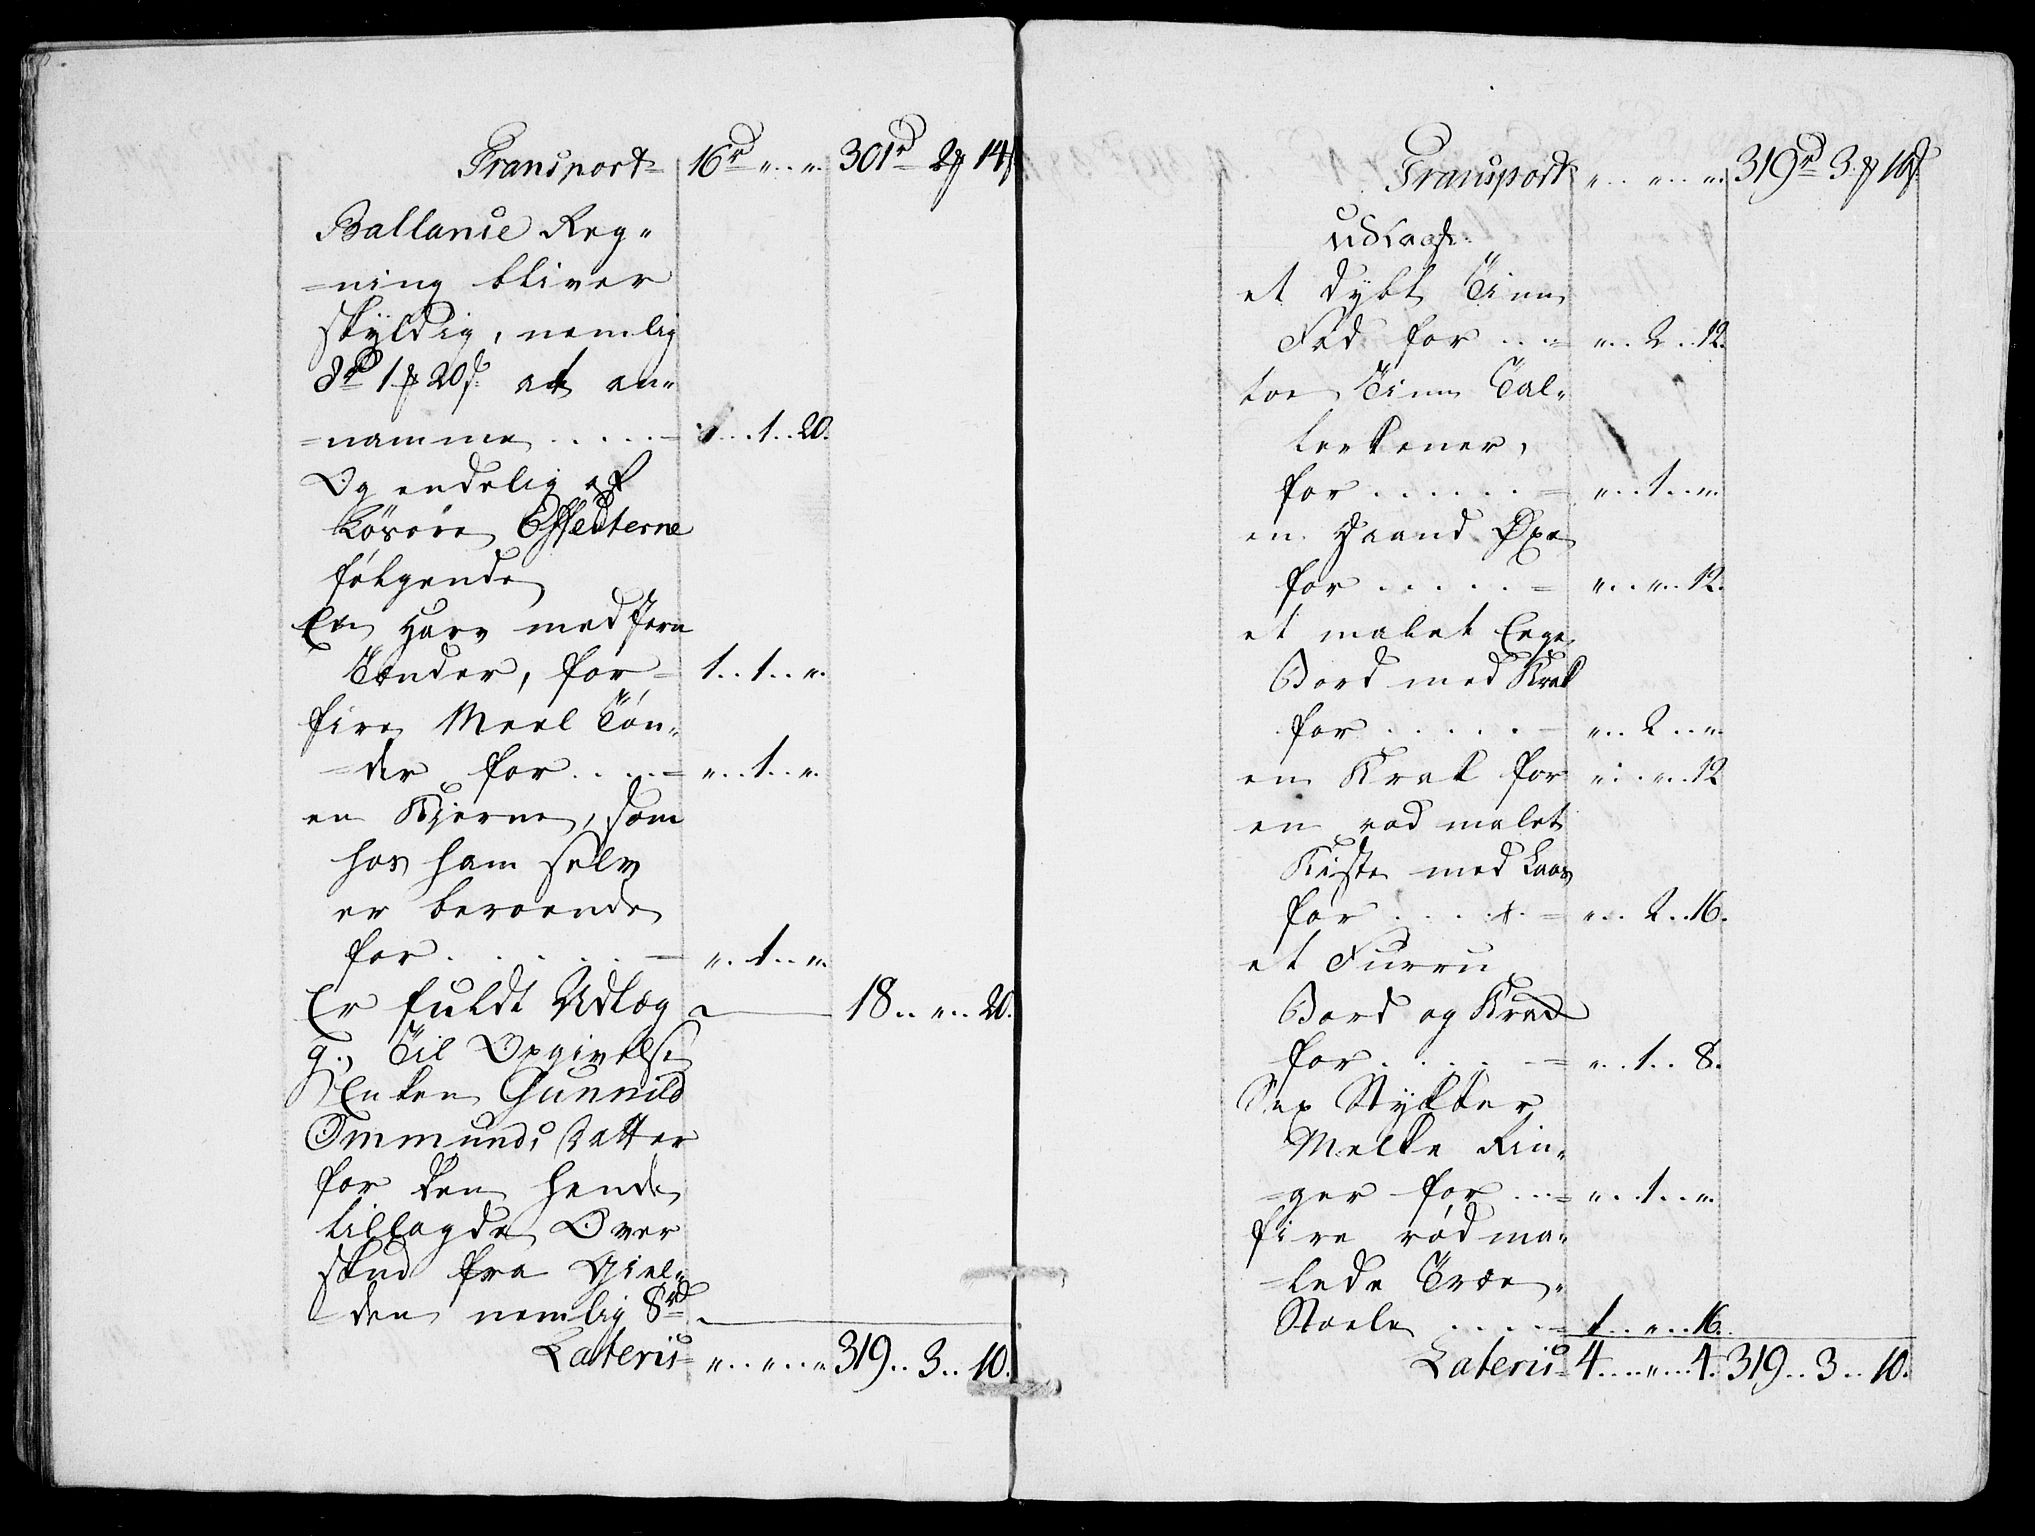 Transport 16rd „ .. „. 301rd 2 ₰ 14 s
Ballance Reg„
=ning bliver
skyldig, nemlig
8rd 1 ₰ 20 s: at an„
=namme . . . . . = „ .. 1 .. 20.
Og endelig af
Løsöre Effecterne
fölgende
En Harv med Jern
Tænder, for = 1 .. 1 .. „.
fire Meel Tön„
=der for . . . . = „ .. 1 .. „.
en Kjerne, som
hos ham selv
er beroende
for . . . . . . = „ .. 1 .. „.
Er fuldt Udlæg — 18 .. „ .. 20.
g., Til Opgivelse
Enken Gunnild
Ommunds Datter
for den hende
tillagde Over
skud fra Giel„
=den nemlig 8rd.
Lateris = „ .. „ .. „ 319 .. 3 .. 10.
Transport „ .. „ .. „. 319rd 3 ₰ 10 s.
Udlagt.
et dybt Tinn
Fad for . . . = „ .. 2 .. 12.
toe Tinn Tal„
lerkener,
for . . . . . . = „ .. 1 .. „.
en Haand Øxe
for . . . . . = „ .. „ .. 12.
et malet Eege
Bord med Krak
for . . . . . = „ .. 2 .. „.
en Krak for „ .. „ .. 12
en rød malet
Kiste med Laas
for . . . . . = „ .. 2 .. 16.
et Furru
Bord og Krak
for . . . . . = „ .. 1 .. 8.
Sex Stykker
Melke Rin„
=ger for . . . = „ .. 1 .. „.
fire rödma„
=lede Træe„
Stoele . . . . = 1 .. „ .. 16.
Lateris = 4 .. „ .. 4. 319 .. 3 .. 10.